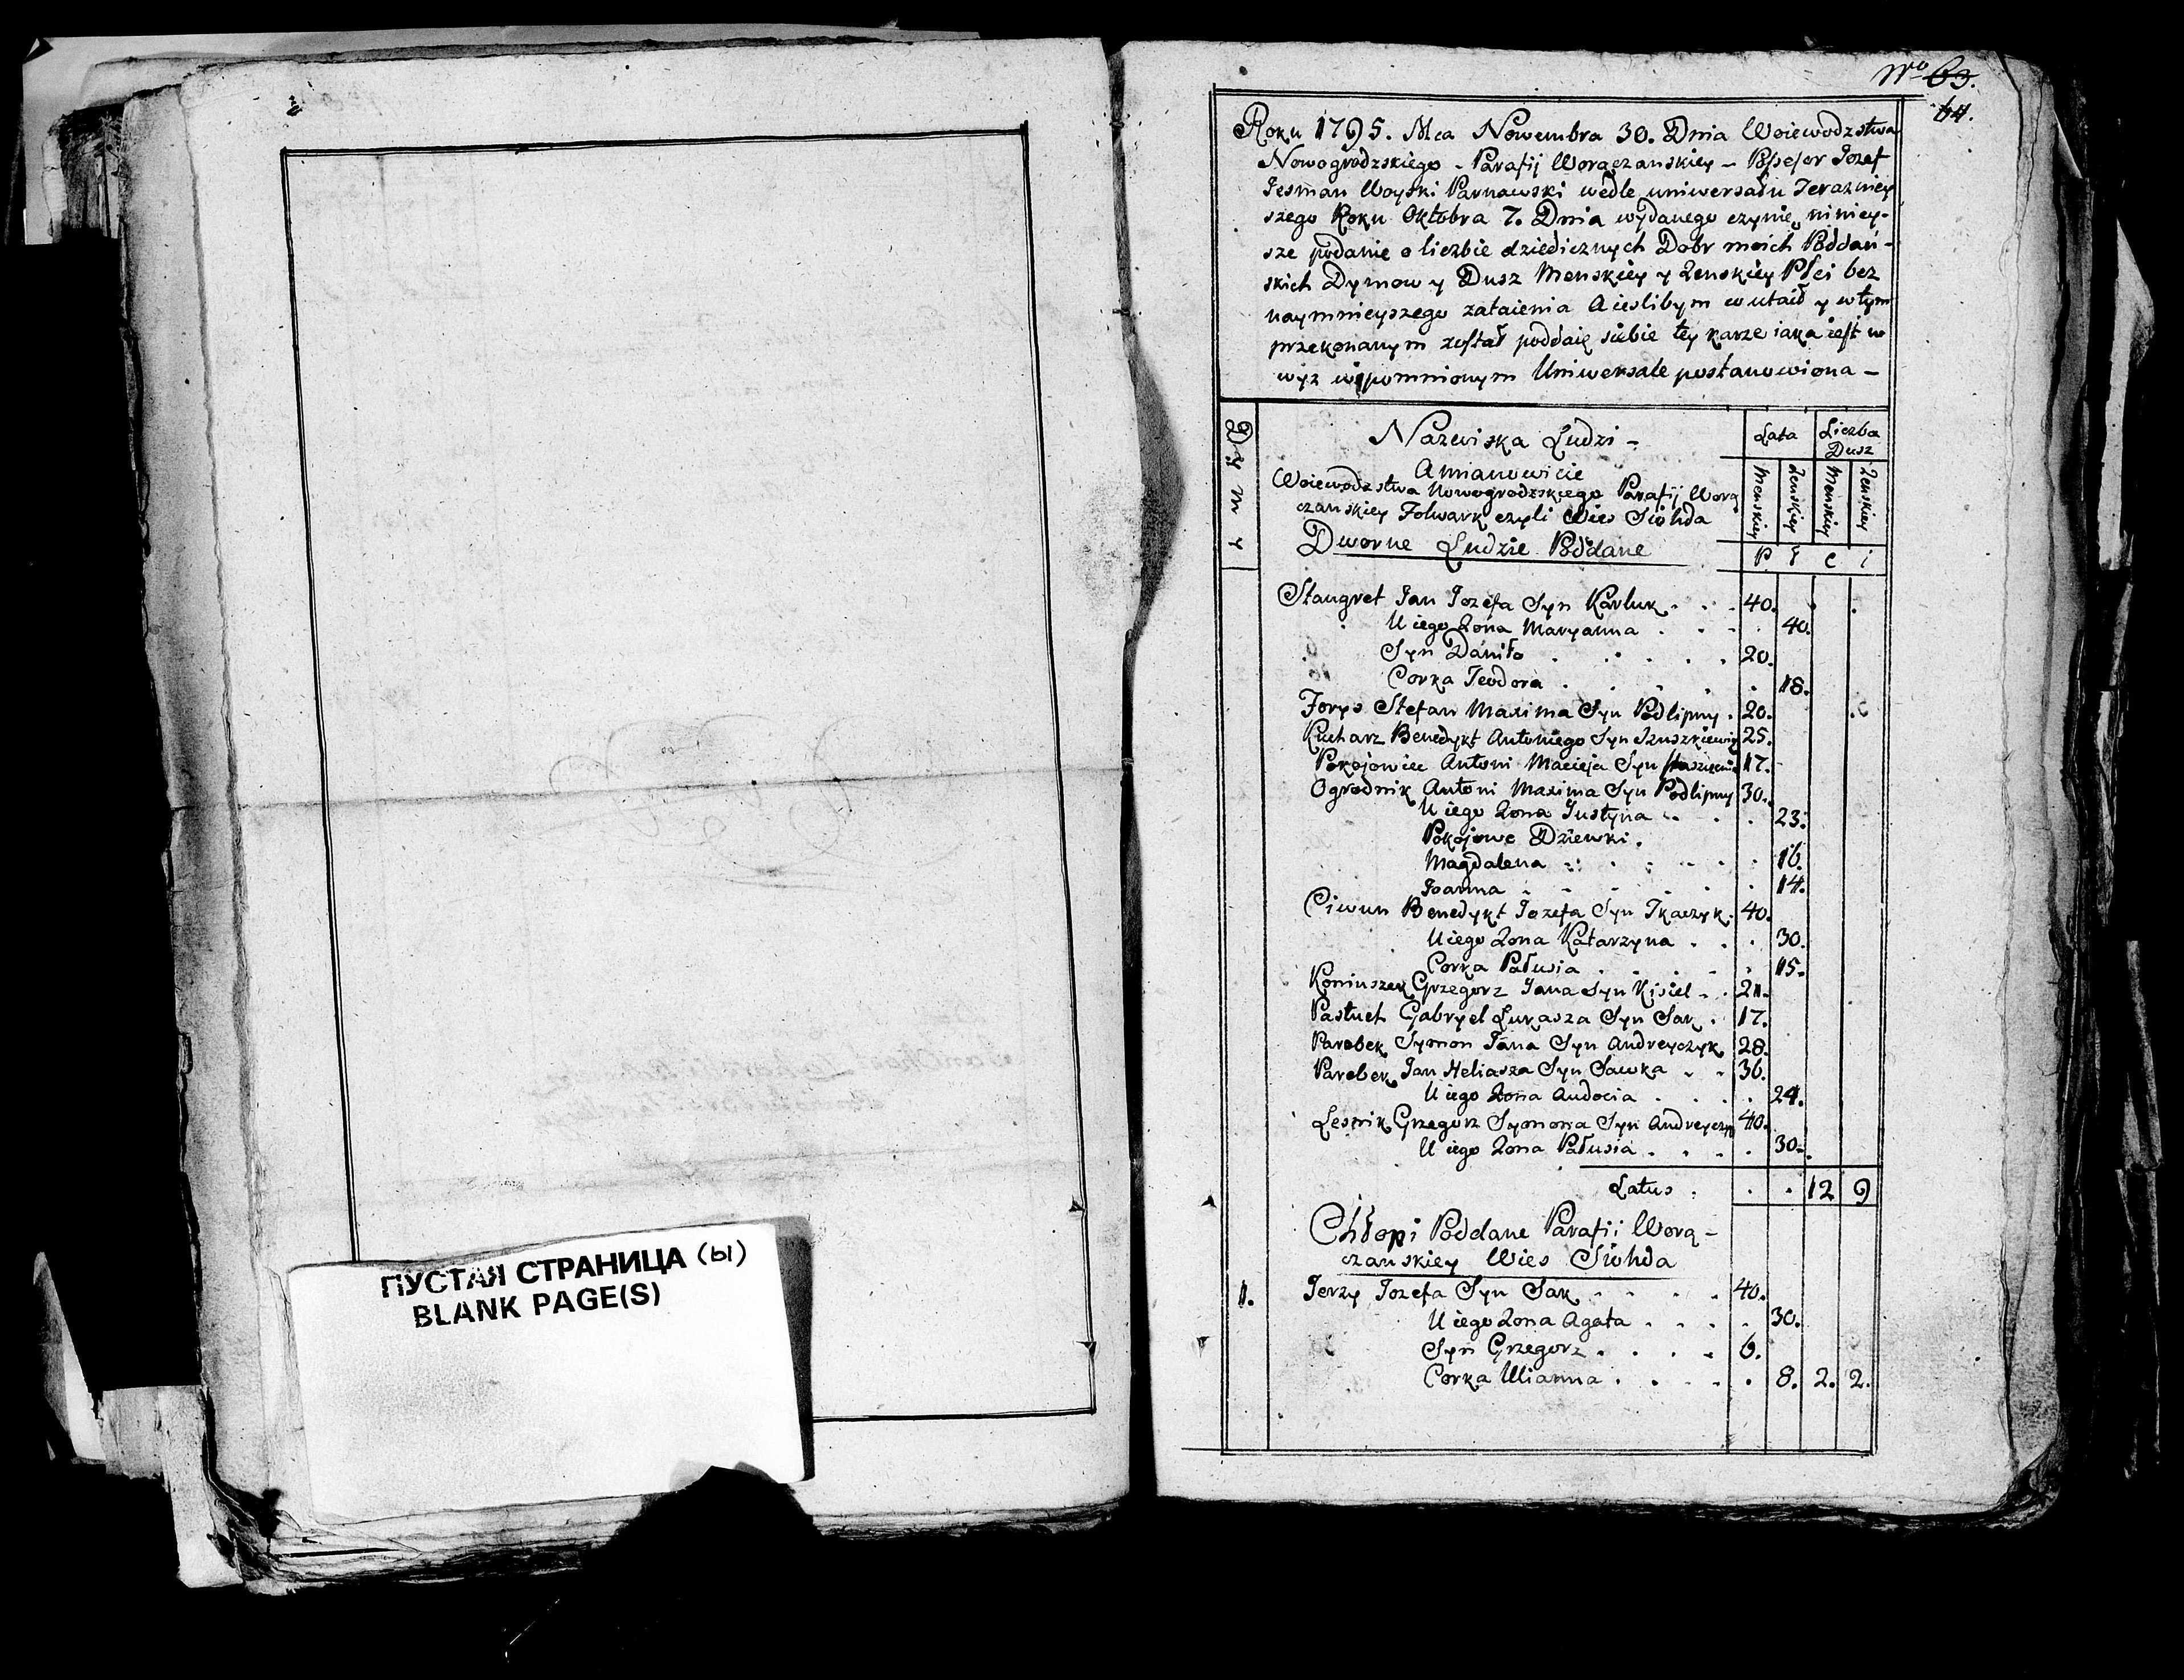 ПУСТАЯ СТРАНИЦА (ы)
BLANK PAGE(S)
No 63.
64.
Roku 1795. Mca Nowembra 30. Dnia Woiewodzstwa
Nowogrodzskiego - Parafij Worączanskiey - Possesor Jozef
Jesman Woyski Parnawski wedle uniwersału Terazniey
szego Roku Oktobra 7. Dnia wydanego czynię niniey-
sze podanie o liczbie dziedicznych Dobr moich Poddań-
skich Dymow y Dusz Menskiey y Zenskiey Płci bez
naymnieyszego zataienia A ieslibym co utaił y w tym
przekonanym został poddaię siebie tey karze iaka iest w
wyz wspomnionym Uniwersale postanowiona -
Dymy
Nazwiska Ludzi - Lata Liczba Dusz
Amianowicie
Woiewodzstwa Nowogrodzskiego Parafij Worą
czanskiey Folwark czyli Wies Siohda
Dworne Ludzie Poddane
Menskiey Zenskiey Menskiey Zenskiey
P ł c i
Stangret Jan Jozefa Syn Karluk . . . 40.
U iego Zona Maryanna . . . 40.
Syn Daniło . . . . . 20.
Corka Teodora . . . . . 18.
Forys Stefan Maxima Syn Podlipny . 20.
Kucharz Benedykt Antoniego Syn 25.
Pokojowiec Antoni Macieja Syn 17.
Ogrodnik Antoni Maxima Syn Podlipny 30.
U iego Zona Justyna . . . 23.
Pokojowe Dziewki.
Magdalena . . . . . 16.
Joanna . . . . . . 14.
Ciwun Benedykt Jozefa Syn Tkaczyk. 40.
U iego Zona Katarzyna . . . 30.
Corka Pałusia . . . . . 15.
Koniuszek Grzegorz Jana Syn Kisiel . . 21.
Pastuch Gabryel Łukasza Syn Sak . 17.
Parobek Symon Jana Syn Andreyczyk 28.
Parobek Jan Heliasza Syn Sawka . . 36.
U iego Zona Audocia . . . . 24.
Lesnik Grzegorz Symona Syn Andreyczy 40.
U iego Zona Pałusia . . . . 30.
Latus . . . 12 9
Chłopi Poddane Parafii Worą-
czanskiey Wies Siohda
1. Jerzy Jozefa Syn Sak . . . . 40.
U iego Zona Agata . . . . 30.
Syn Grzegorz . . . . 6.
Corka Ulianna . . . . . 8. 2. 2.